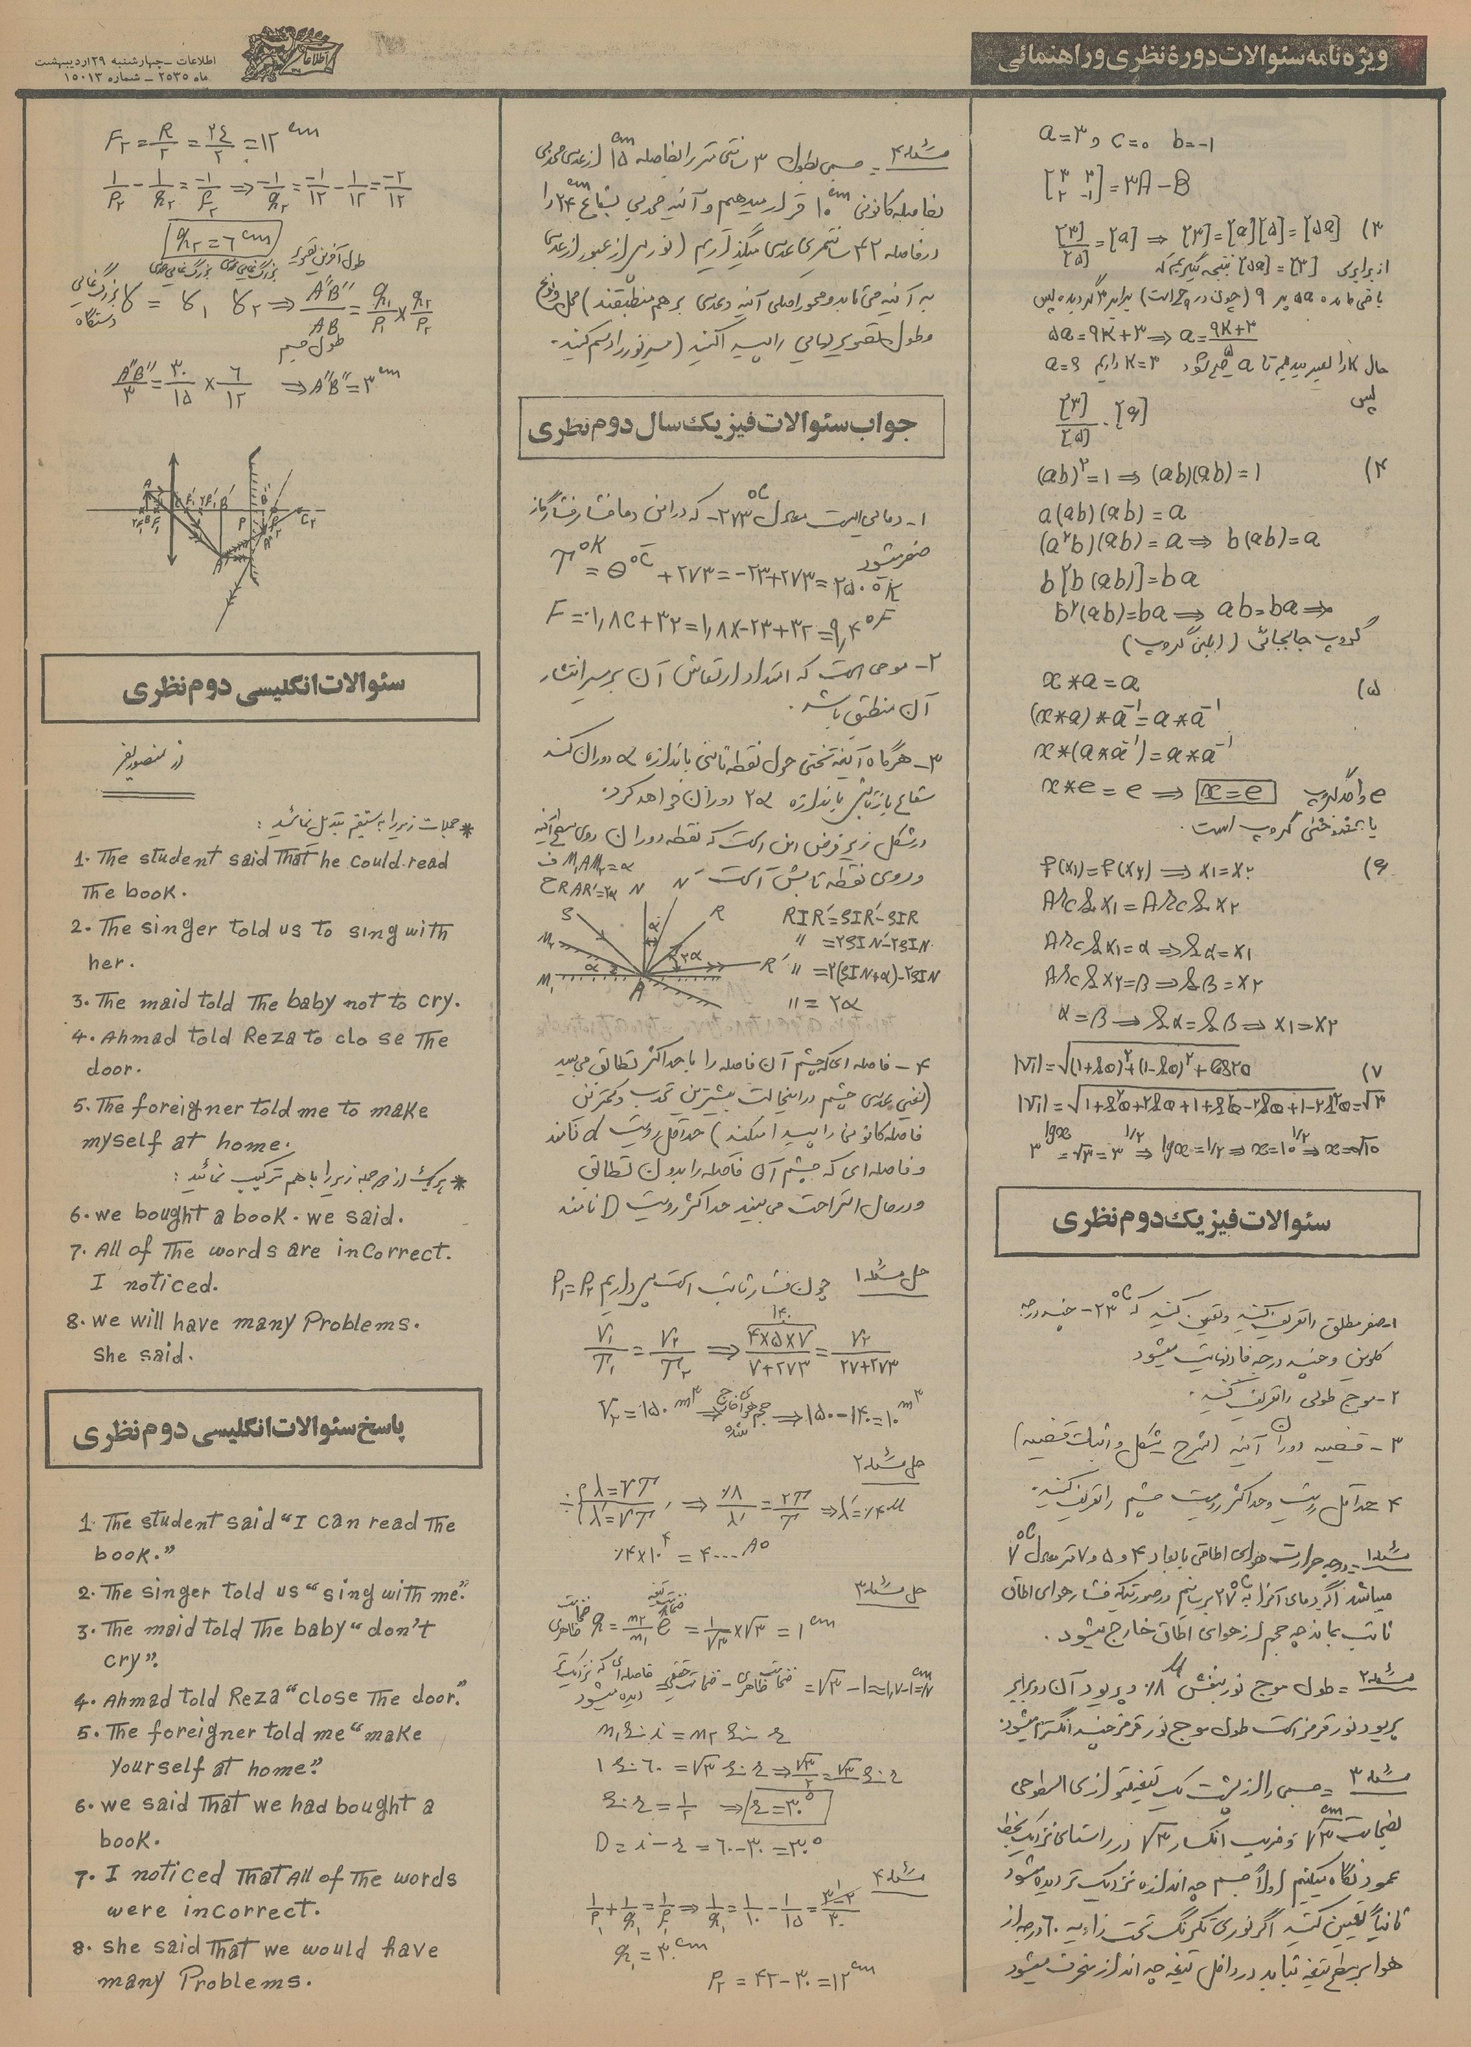 ویژه نامه سئوالات دورهٔ نظری و راهنمائی
اطلاعات
اطلاعات ـ چهارشنبه ۲۹ اردیبهشت
ماه ۲۵۳۵ ـ شماره ۱۵۰۱۳
a=۳ , c=۰ b=-۱
[۳ ۳ ۲ -۱] = ۳A-B
۳) [۳]/[۵] = [a] ⇒ [۳]=[a][۵]=[۵a]
از برابری [۳]=[۵a] نتیجه میگیریم که
باقی مانده ۵a بر ۹ (چون در و ح است) برابر ۳ گردیده پس
۵a=۹K+۳ ⇒ a=(۹K+۳)/۵
حال K را تغییر میدهیم تا a صحیح شود K=۳ داریم a=۶
پس
[۳]/[۵] = [۶]
۴) (ab)²=۱ ⇒ (ab)(ab)=۱
a(ab)(ab)=a
(a²b)(ab)=a ⇒ b(ab)=a
b[b(ab)]=ba
b²(ab)=ba ⇒ ab=ba ⇒
گروپ جابجائی (آبلی گروپ)
۵) x*a=a
(x*a)*a⁻¹=a*a⁻¹
x*(a*a⁻¹)=a*a⁻¹
x*e=e ⇒ x=e e واحد گروپ
یا عنصر خنثی گروپ است.
۶) f(x₁)=f(x₂) ⇒ x₁=x₂
Arc sin x₁=Arc sin x₂
Arc sin x₁=α ⇒ sin α=x₁
Arc sin x₂=β ⇒ sin β=x₂
α=β ⇒ sin α=sin β ⇒ x₁=x₂
۷) |V₁|=√((۱+sin θ)²+(۱-sin θ)²+cos ۲θ)
|V₁|=√(۱+sin²θ+۲sin θ+۱+sin²θ-۲sin θ+۱-۲sin²θ)=√۳
۳^lgx=√۳=۳^۱/۲ ⇒ lgx=۱/۲ ⇒ x=۱۰^۱/۲ ⇒ x=√۱۰
سئوالات فیزیک دوم نظری
۱-صفر مطلق را تعریف کنید و تعیین کنید که ۲۳°C- چند درجه
کلوین و چند درجه فارنهایت میشود
۲-موج طولی را تعریف کنید.
۳- قضیه دوران آئینه (شرح شکل و اثبات قضیه)
۴ حداقل رویت و حداکثر رویت چشم را تعریف کنید.
مسئله ۱= درجه حرارت هوای اطاقی بابعاد ۴ و ۵ و ۷ متر معادل ۷°C
میباشد اگر دمای آنرا به ۲۷°C برسانیم درصورتیکه فشار هوای اطاق
ثابت بماند چه حجم از هوای اطاق خارج میشود.
مسئله ۲= طول موج نور بنفش ۰/۸μ و پریود آن دو برابر
پریود نور قرمز است طول موج نور قرمز چند انگستر میشود.
مسئله ۳ = جسمی را از پشت یک تیغه متوازی السطوحی
بضخامت √۳ cm و ضریب انکسار √۳ در راستای نزدیک بخط
عمود نگاه میکنیم اولاً جسم چه اندازه نزدیک تر دیده میشود
ثانیاً تعیین کنید اگر نوری تکرنگ تحت زاویه ۶۰ درجه از
هوا بر سطح تیغه بتابد در داخل تیغه چه اندازه منحرف میشود
مسئله ۴= جسمی بطول ۳ سانتی متر را بفاصله ۱۵ cm از عدسی محدبی
بفاصله کانونی ۱۰ cm قرار میدهیم و آئینه محدبی بشعاع ۲۴ cm را
در فاصله ۴۲ سانتیمتری عدسی میگذاریم (نور پس از عبور از عدسی
به آئینه می تابد و محور اصلی آئینه و عدسی بر هم منطبقند) محل وقوع
و طول تصویر نهایی را پیدا کنید (مسیر نور را رسم کنید.
جواب سئوالات فیزیک سال دوم نظری
۱- دمایی است معادل ۲۷۳°C- که در این دما فشار گاز
صفر میشود
T°K = θ°C+۲۷۳=-۲۳+۲۷۳=۲۵۰°K
F=۱٫۸C+۳۲=۱٫۸x-۲۳+۳۲=۹٫۴°F
۲- موجی است که امتداد ارتعاش آن بر مسیر انتشار
آن منطبق باشد.
۳- هرگاه آئینه تختی حول نقطه ثابتی باندازه α دوران کند
شعاع بازتابش باندازه ۲α دوران خواهد کرد.
در شکل زیر فرض این است که نقطه دوران روی سطح آئینه
و روی نقطه تابش است
ف M₁AM₂=α
ح RAR'=۲α
S N N' R M₂ M₁ A R' α ۲α
RIR'=SIR'-SIR
" =۲SIN'-۲SIN
" =۲(SIN+α)-۲SIN
" =۲α
۴- فاصله ای که چشم آن فاصله را با حداکثر تطابق می بیند
(یعنی عدسی چشم در اینحالت بیشترین تحدب و کمترین
فاصله کانونی را پیدا میکند) حداقل رویت d نامند
و فاصله ای که چشم آن فاصله را بدون تطابق
و در حال استراحت می بیند حداکثر رویت D نامند
حل مسئله ۱ چون فشار ثابت است پس داریم P₁=P₂
V₁/T₁ = V₂/T₂ ⇒ ۱۴۰ ۴x۵x۷/(۷+۲۷۳) = V₂/(۲۷+۲۷۳)
V₂=۱۵۰ m³ ⇒ حجم هوای خارج شده ⇒ ۱۵۰-۱۴۰=۱۰ m³
حل مسئله ۲
÷ {λ=VT / λ'=VT' ⇒ ۰/۸/λ' = ۲T/T ⇒ λ'=۰/۴μ
۰/۴x۱۰⁴ = ۴۰۰۰ A°
حل مسئله ۳
ضخامت ظاهری q=n₂/n₁ e ضخامت تیغه =۱/√۳ x√۳=۱ cm
فاصله ای که نزدیکتر دیده میشود = ضخامت حقیقی - ضخامت ظاهری = √۳-۱=۱٫۷-۱=۰/۷ cm
n₁ sin i=n₂ sin r
۱ sin ۶۰=√۳ sin r ⇒ √۳/۲=√۳ sin r
sin r=۱/۲ ⇒ r=۳۰°
D=i-r=۶۰-۳۰=۳۰°
مسئله ۴
۱/P₁+۱/q₁=۱/f₁ ⇒ ۱/q₁=۱/۱۰-۱/۱۵=(۳-۲)/۳۰
q₁=۳۰ cm
P₂=۴۲-۳۰=۱۲ cm
F₂=R/۲=۲۴/۲=۱۲ cm
۱/P₂-۱/q₂=-۱/f₂ ⇒ -۱/q₂=-۱/۱۲-۱/۱۲=-۲/۱۲
q₂=۶ cm
طول آخرین تصویر
بزرگ نمایی دستگاه γ=γ₁ γ₂ ⇒ A"B"/AB=q₁/P₁ x q₂/P₂
طول جسم
A"B"/۳=۳۰/۱۵ x ۶/۱۲ ⇒ A"B"=۳ cm
سئوالات انگلیسی دوم نظری
* جملات زیر را به مستقیم تبدیل نمائید:
1. The student said That he could read
The book.
2. The singer told us to sing with
her.
3. The maid told The baby not to cry.
4. Ahmad told Reza to close The
door.
5. The foreigner told me to make
myself at home.
* هریک از دو جمله زیر را با هم ترکیب نمائید:
6. we bought a book. we said.
7. All of The words are inCorrect.
I noticed.
8. we will have many Problems.
she said.
پاسخ سئوالات انگلیسی دوم نظری
1. The student said "I can read The
book."
2. The singer told us "sing with me."
3. The maid told The baby "don't
cry".
4. Ahmad told Reza "close The door."
5. The foreigner told me "make
yourself at home."
6. we said That we had bought a
book.
7. I noticed That All of The words
were incorrect.
8. she said That we would have
many Problems.